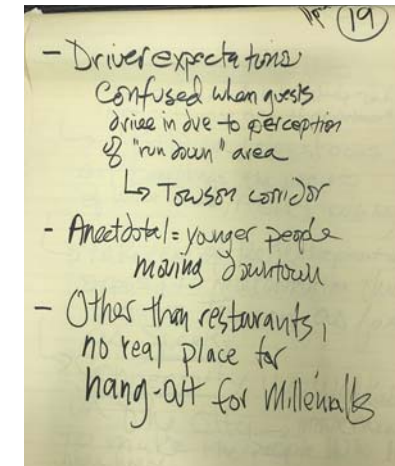 19
- Driver expectations
Confused when guests
drive in due to perception
of "run down" area
↳ Towson corridor
- Anectdotal = younger people
moving downtown
- Other than restaurants,
no real place for
hang-out for Millenialls